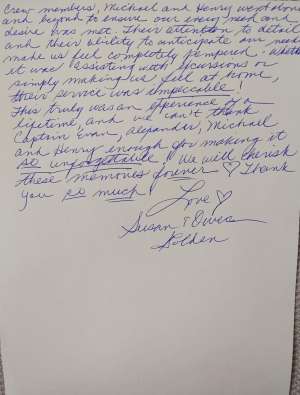 Crew members, Michael and Henry went above
and beyond to ensure our every need and
desire was met. Their attention to detail
and their ability to anticipate our needs
made us feel completely pampered. Whether
it was assisting with excursions or
simply making us feel at home,
their service was impeccable!
This truly was an experience of a
lifetime, and we can't thank
Captain Evan, Alexander, Michael
and Henry enough for making it
so unforgettable! We will cherish
these memories forever ♡ Thank
you so much!
Love ♡
Susan &